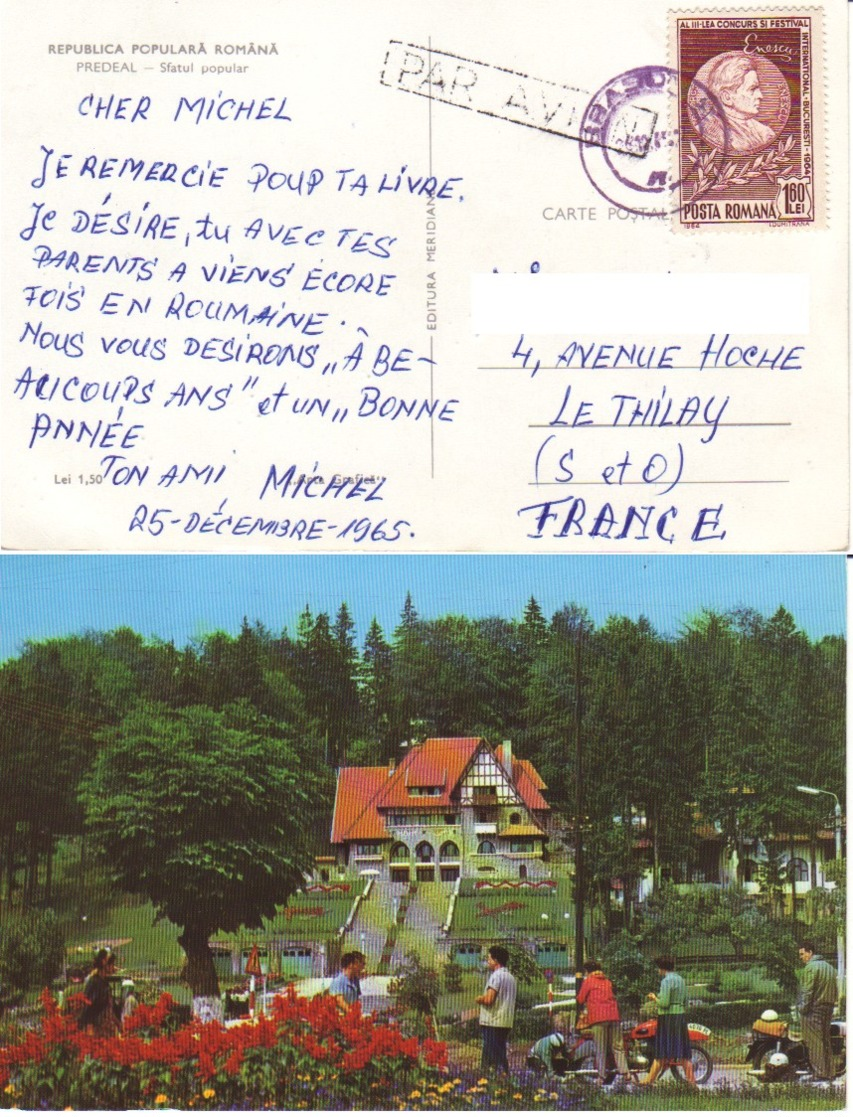 REPUBLICA POPULARĂ ROMÂNĂ
PREDEAL — Sfatul popular
CHER MICHEL
JE REMERCIE POUP TA LIVRE.
JE DÉSIRE, tu AVEC TES
PARENTS A VIENS ÉCORE
FOIS EN ROUMAINE.
NOUS VOUS DESIRONS „À BE-
AUCOUPS ANS" et UN „BONNE
ANNÉE
TON AMI MICHEL
25-DÉCEMBRE-1965.
Lei 1,50
„Arta Grafică"
EDITURA MERIDIANE
PAR AVION
AL III-LEA CONCURS SI FESTIVAL
INTERNATIONAL-BUCURESTI-1964
Enescu
POSTA ROMANA
1,60
LEI
1964
I.DUMITRANA
CARTE POSTAL
4, AVENUE HOCHE
LE THILAY
(S et O)
FRANCE